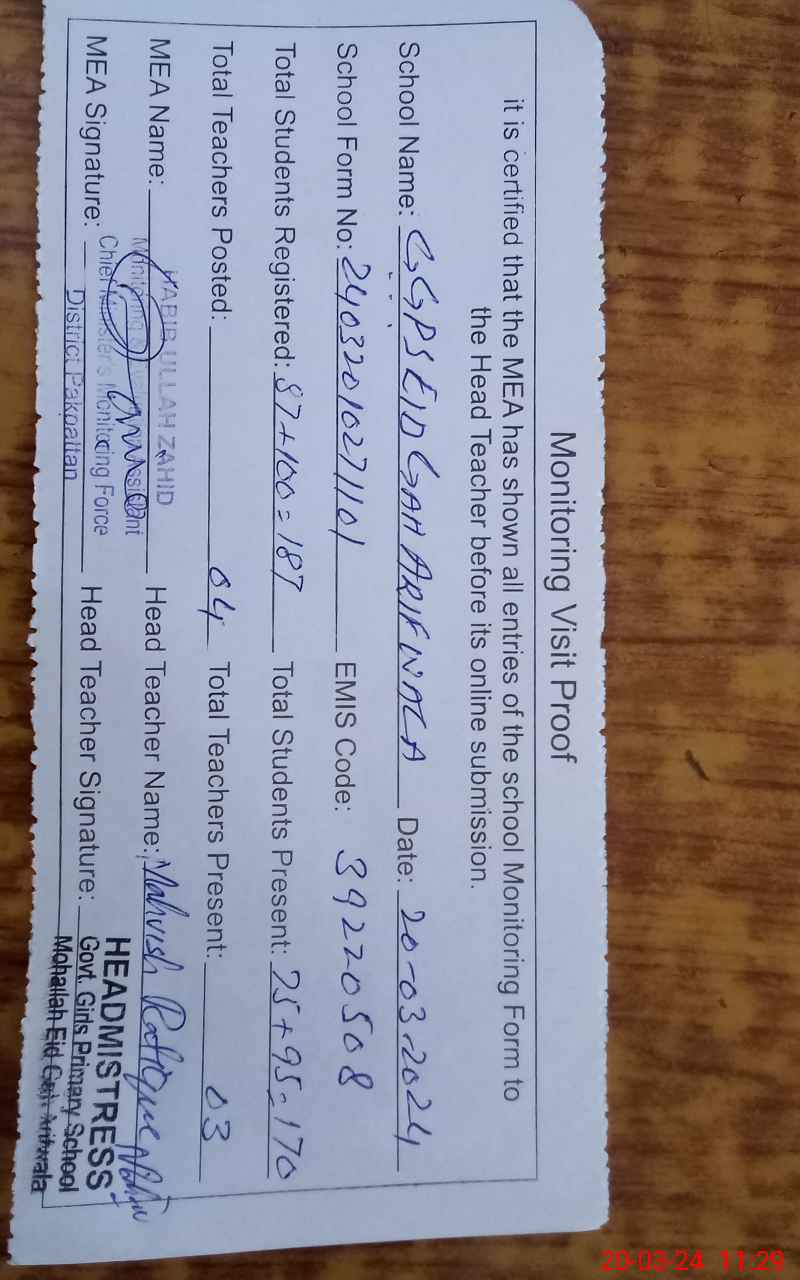 Monitoring Visit Proof
it is certified that the MEA has shown all entries of the school Monitoring Form to
the Head Teacher before its online submission.
School Name: GGPS EID GAH ARIFWALA Date: 20-03-2024
School Form No: 24032010271101 EMIS Code: 39220508
Total Students Registered: 87+100=187 Total Students Present: 75+95=170
Total Teachers Posted: 04 Total Teachers Present: 03
MEA Name: HABIB ULLAH ZAHID Head Teacher Name: Mahvish Rafique
Monitoring & Assistant
MEA Signature: Chief Minister's Monitoring Force Head Teacher Signature:
District Pakpattan
HEADMISTRESS
Govt. Girls Primary School
Mohallah Eid Gah Arifwala
20-03-24 11:29